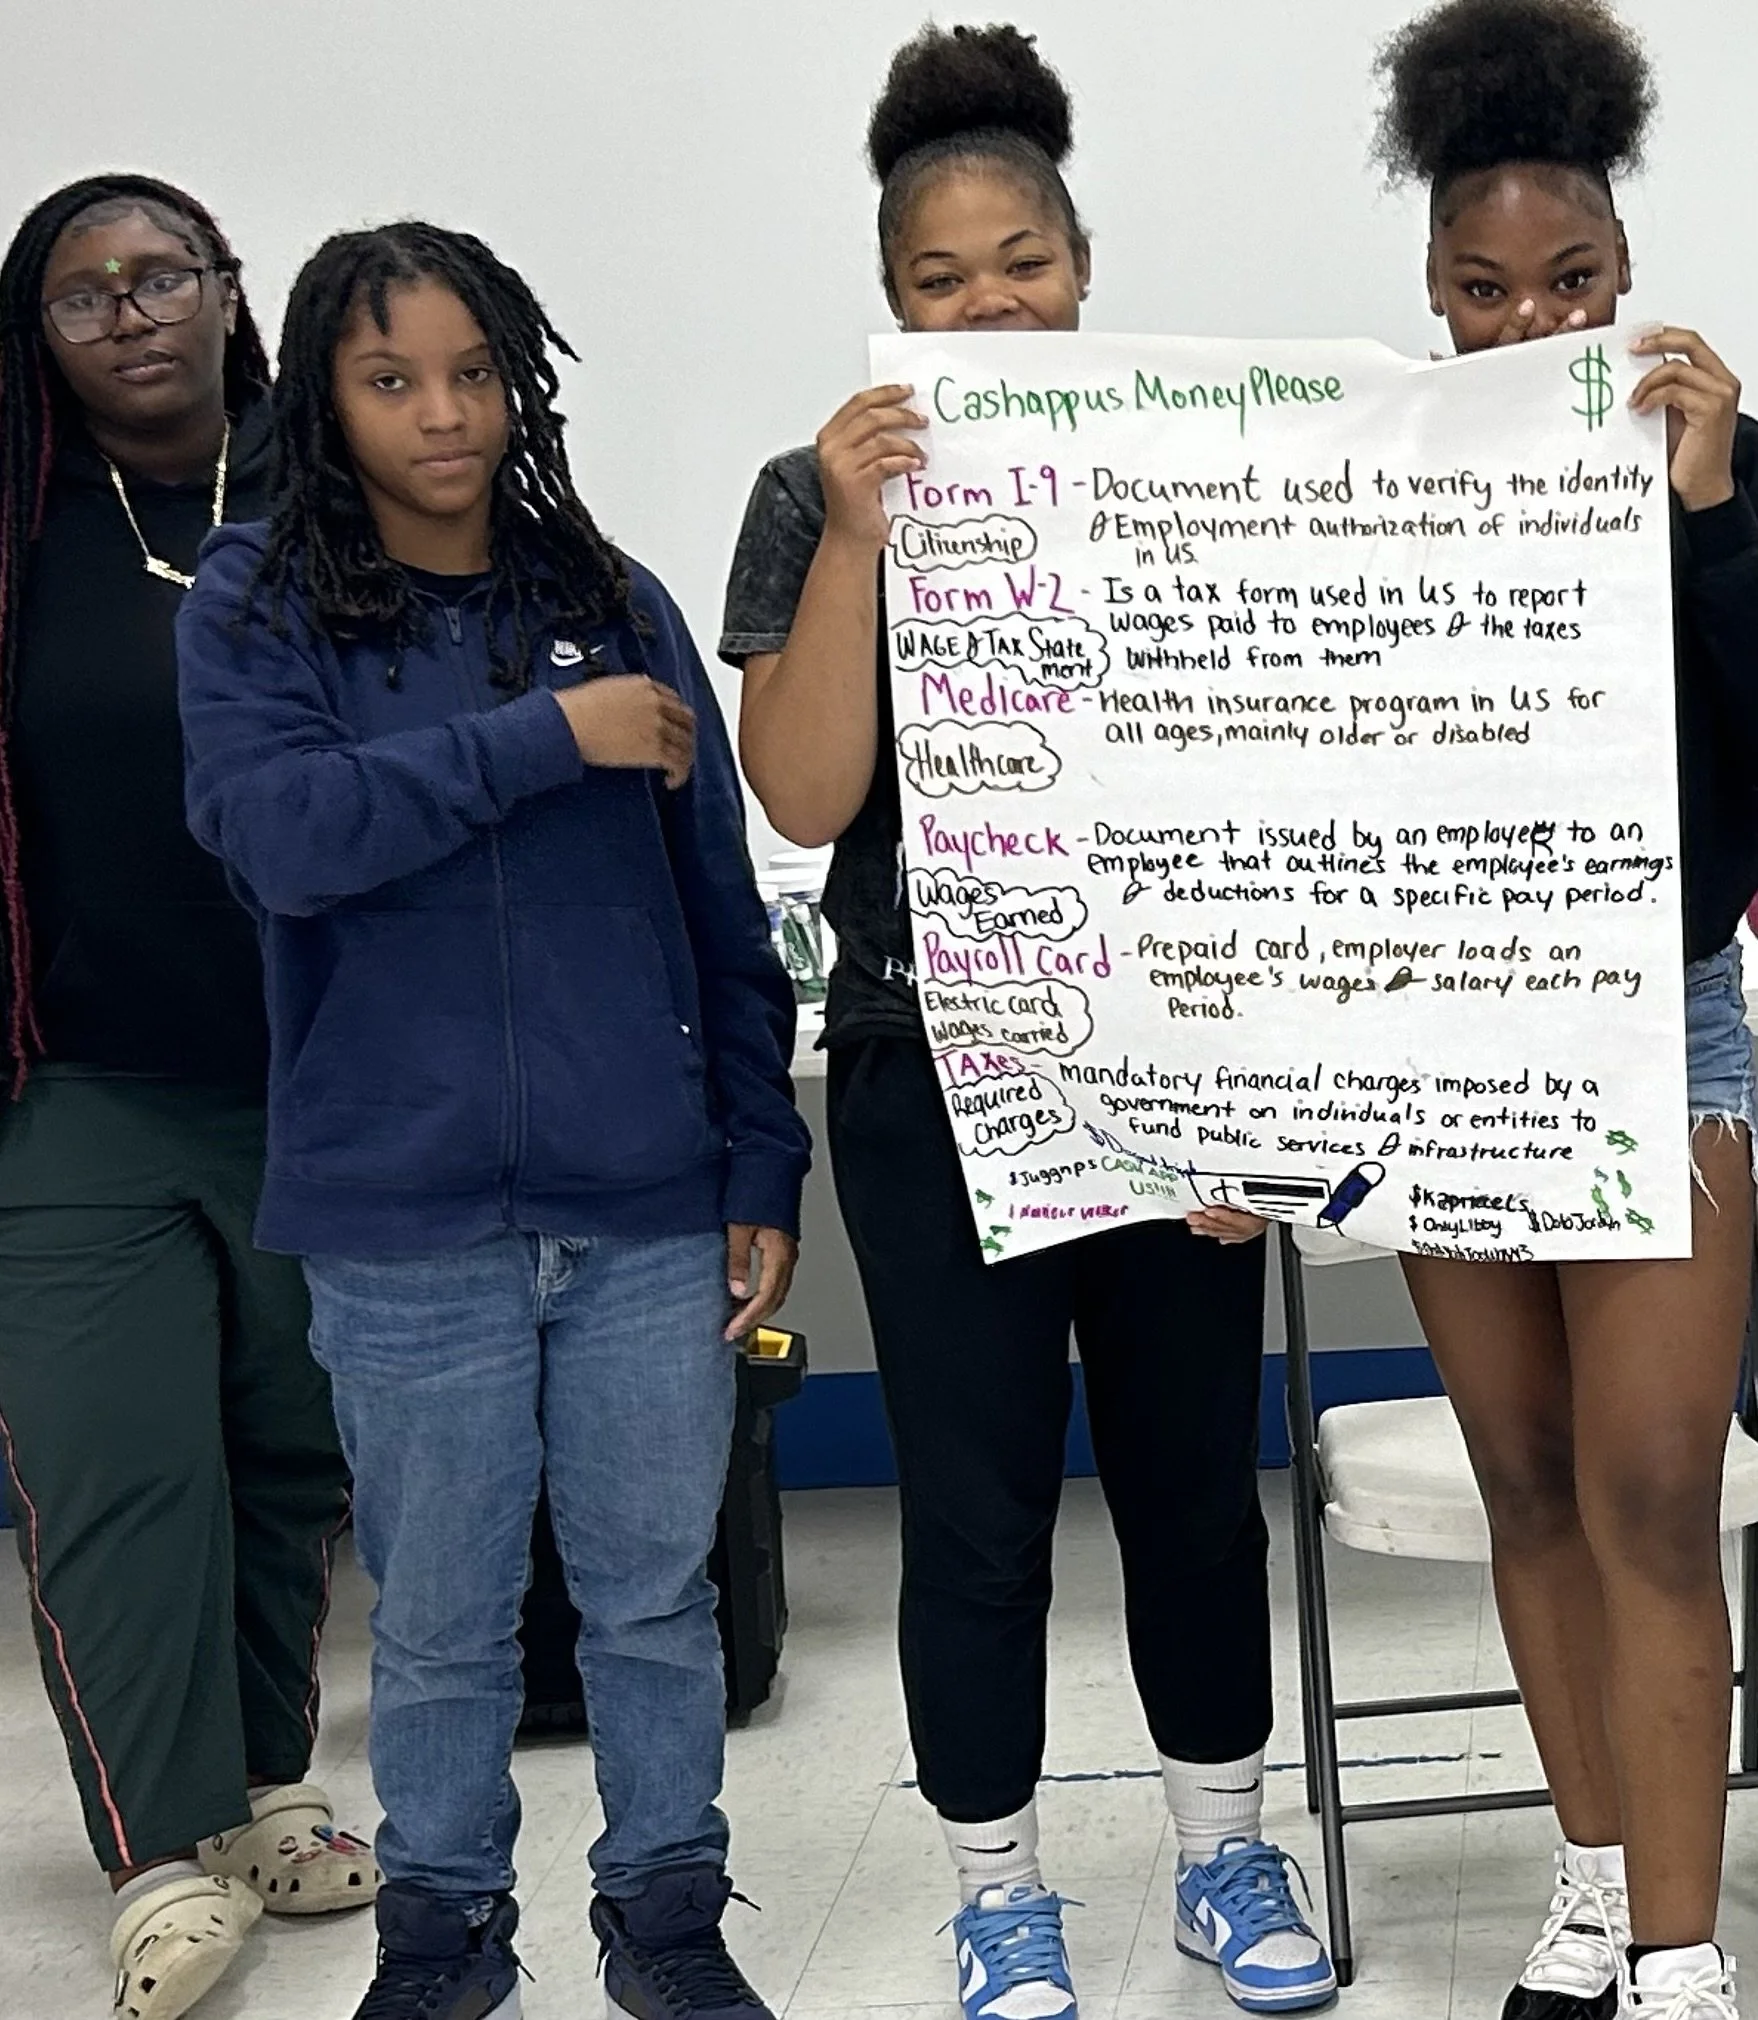 Cashappus Money Please $
Form I-9 - Document used to verify the identity
& Employment authorization of individuals
in US.
Citizenship
Form W-2 - Is a tax form used in US to report
wages paid to employees & the taxes
withheld from them
WAGE & TAX State
ment
Medicare - Health insurance program in US for
all ages, mainly older or disabled
Healthcare
Paycheck - Document issued by an employer to an
employee that outlines the employee's earnings
& deductions for a specific pay period.
Wages
Earned
Payroll Card - Prepaid card, employer loads an
employee's wages & salary each pay
Period.
Electric card
wages carried
TAXES - mandatory financial charges imposed by a
government on individuals or entities to
fund public services & infrastructure
Required
Charges
$Juggnps CASH APP
US!!!!
$KapriceLs
$OnlyLibby $DoloJordyn